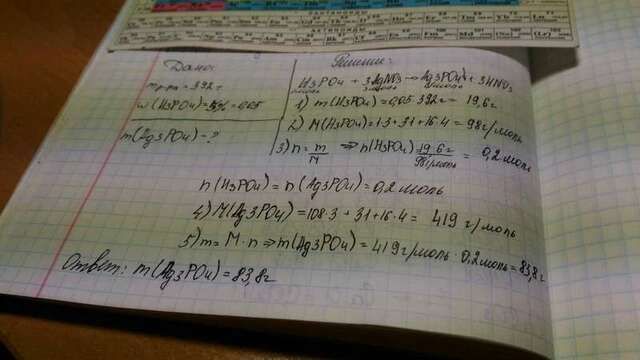 ЛАНТАНОИДЫ
АКТИНОИДЫ
Дано:
mр-ра = 392 г
w(H3PO4)=5%=0,05
m(Ag3PO4)-?
Решение:
H3PO4 + 3AgNO3 → Ag3PO4↓ + 3HNO3
1) m(H3PO4)=0,05·392г= 19,6г
2) M(H3PO4)=1·3+31+16·4=98г/моль
3) n = m/M ⇒ n(H3PO4) 19,6г/98г/моль = 0,2 моль
n(H3PO4) = n(Ag3PO4)=0,2 моль
4) M(Ag3PO4)=108·3 + 31+16·4 = 419 г/моль
5) m= M·n ⇒ m(Ag3PO4)=419г/моль·0,2моль=83,8г
Ответ: m(Ag3PO4)=83,8г